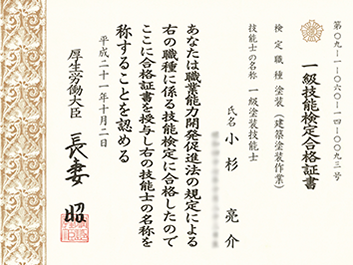 第〇九-一-〇六〇-一四-〇〇九三号
一級技能検定合格証書
検定職種 塗装(建築塗装作業)
技能士の名称 一級塗装技能士
氏名 小杉 亮介
あなたは職業能力開発促進法の規定による
右の職種に係る技能検定に合格したので
ここに合格証書を授与し右の技能士の名称を
称することを認める
平成二十一年十月二日
厚生労働大臣 長妻 昭